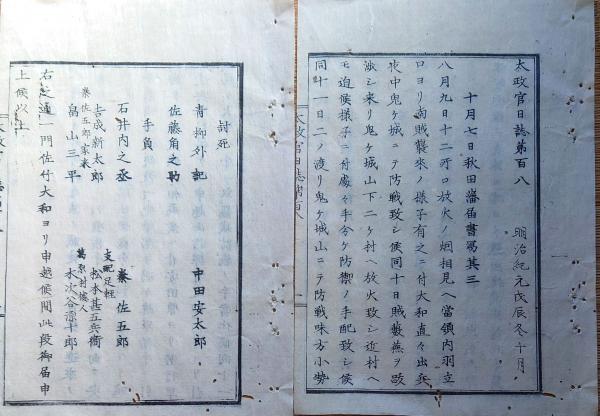 太政官日誌第百八
明治紀元戊辰冬十月
十月七日秋田藩届書写其三
八月九日十二所口放火ノ烟相見ヘ當領内羽立
口ヨリ南賊襲来ノ様子有之ニ付大和直々出兵
夜中鬼ケ城ニテ防戦致シ候同十日賊襲蕪ヲ
渉シ来リ鬼ケ城山下二ケ村ヘ放火致シ近村ヘ
モ迫候様子ニ付處々手分ケ防禦ノ手配致シ候
同十一日二ノ渡リ鬼ケ城山ニテ防戦味方小勢
討死
青柳外記
中田安太郎
佐藤角之助
手負
石井内之丞
秦佐五郎
吉成新太郎
支配足軽
松本甚五兵衛
秦佐五郎家来
畠山三平
木次谷深十郎
右之通一門佐竹大和ヨリ申越候間此段御届申
上候以上
太政官日誌第百八